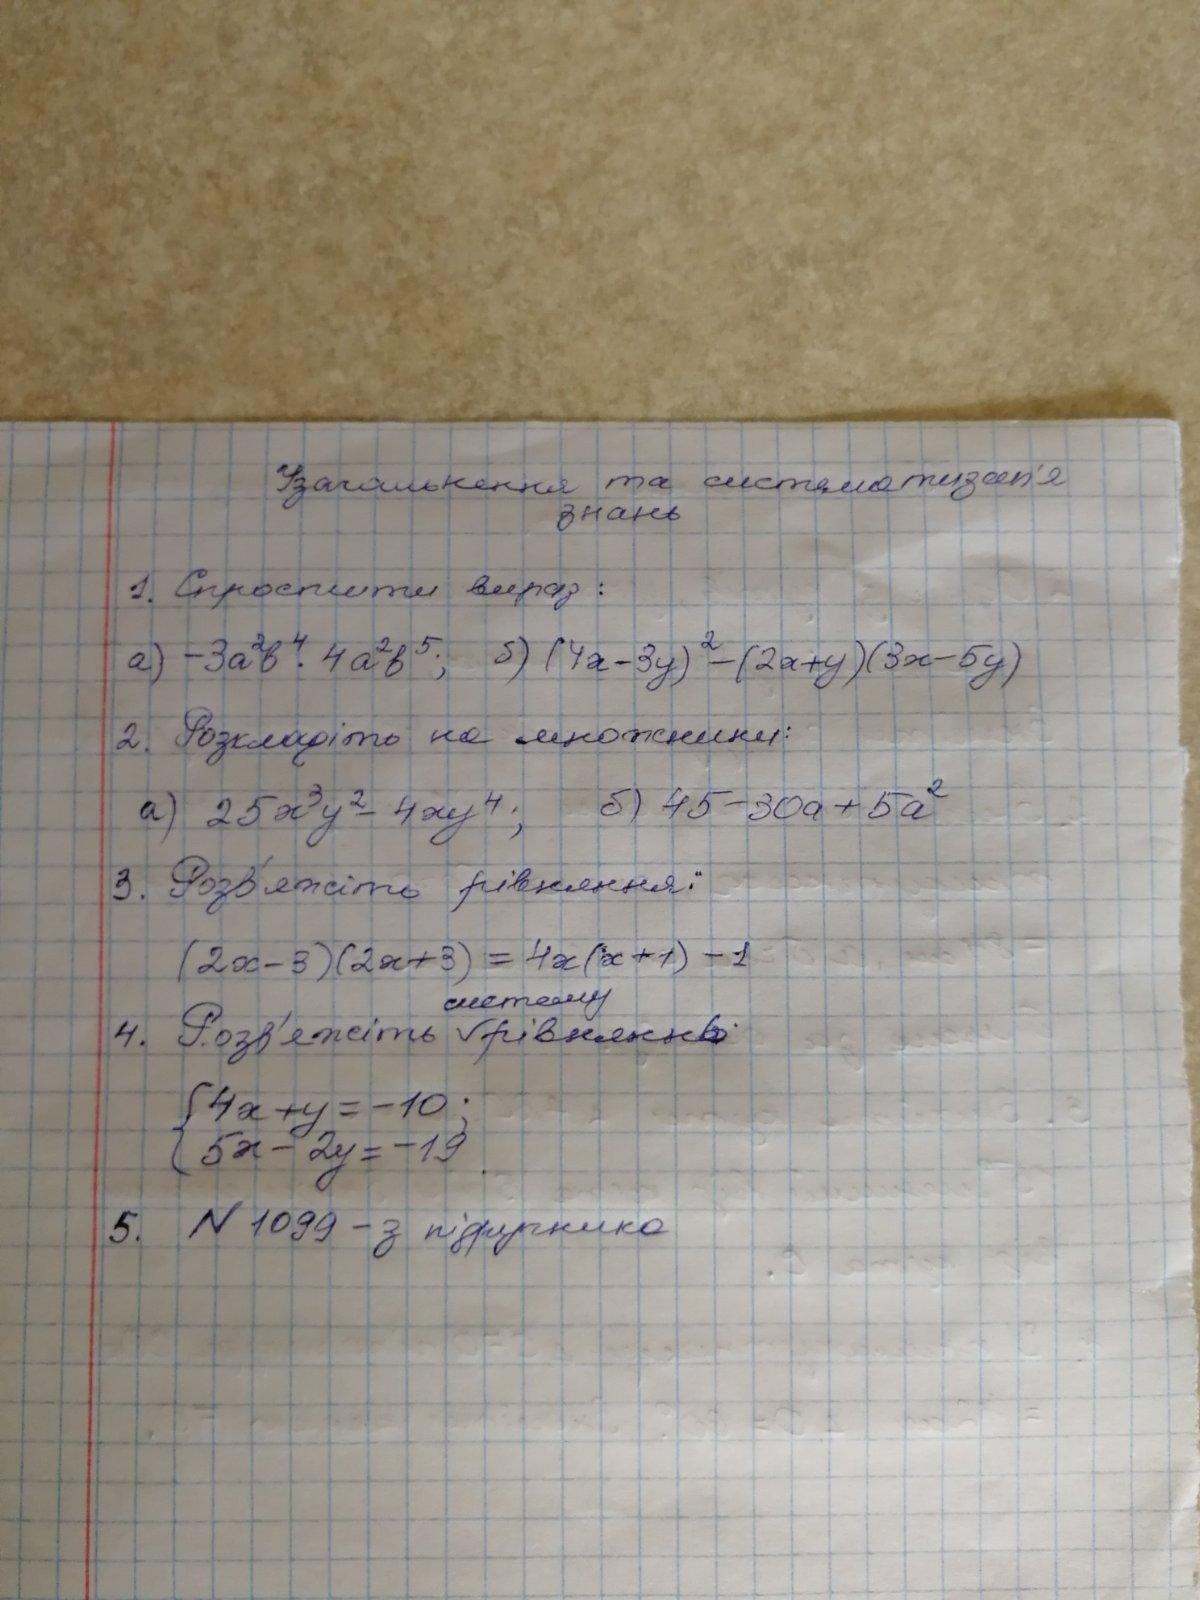 Узагальнення та систематизац'я
знань
1. Спростити вираз:
а) -3a³b⁴ · 4a²b⁵; б) (4x-3y)² - (2x+y)(3x-5y)
2. Розкладіть на множники:
а) 25x³y² - 4xy⁴; б) 45-30a+5a²
3. Розв'яжіть рівняння:
(2x-3)(2x+3) = 4x(x+1) - 1
систему
4. Розв'яжіть √рівнянь
{4x+y=-10;
{5x-2y=-19.
5. N 1099 - з підручника